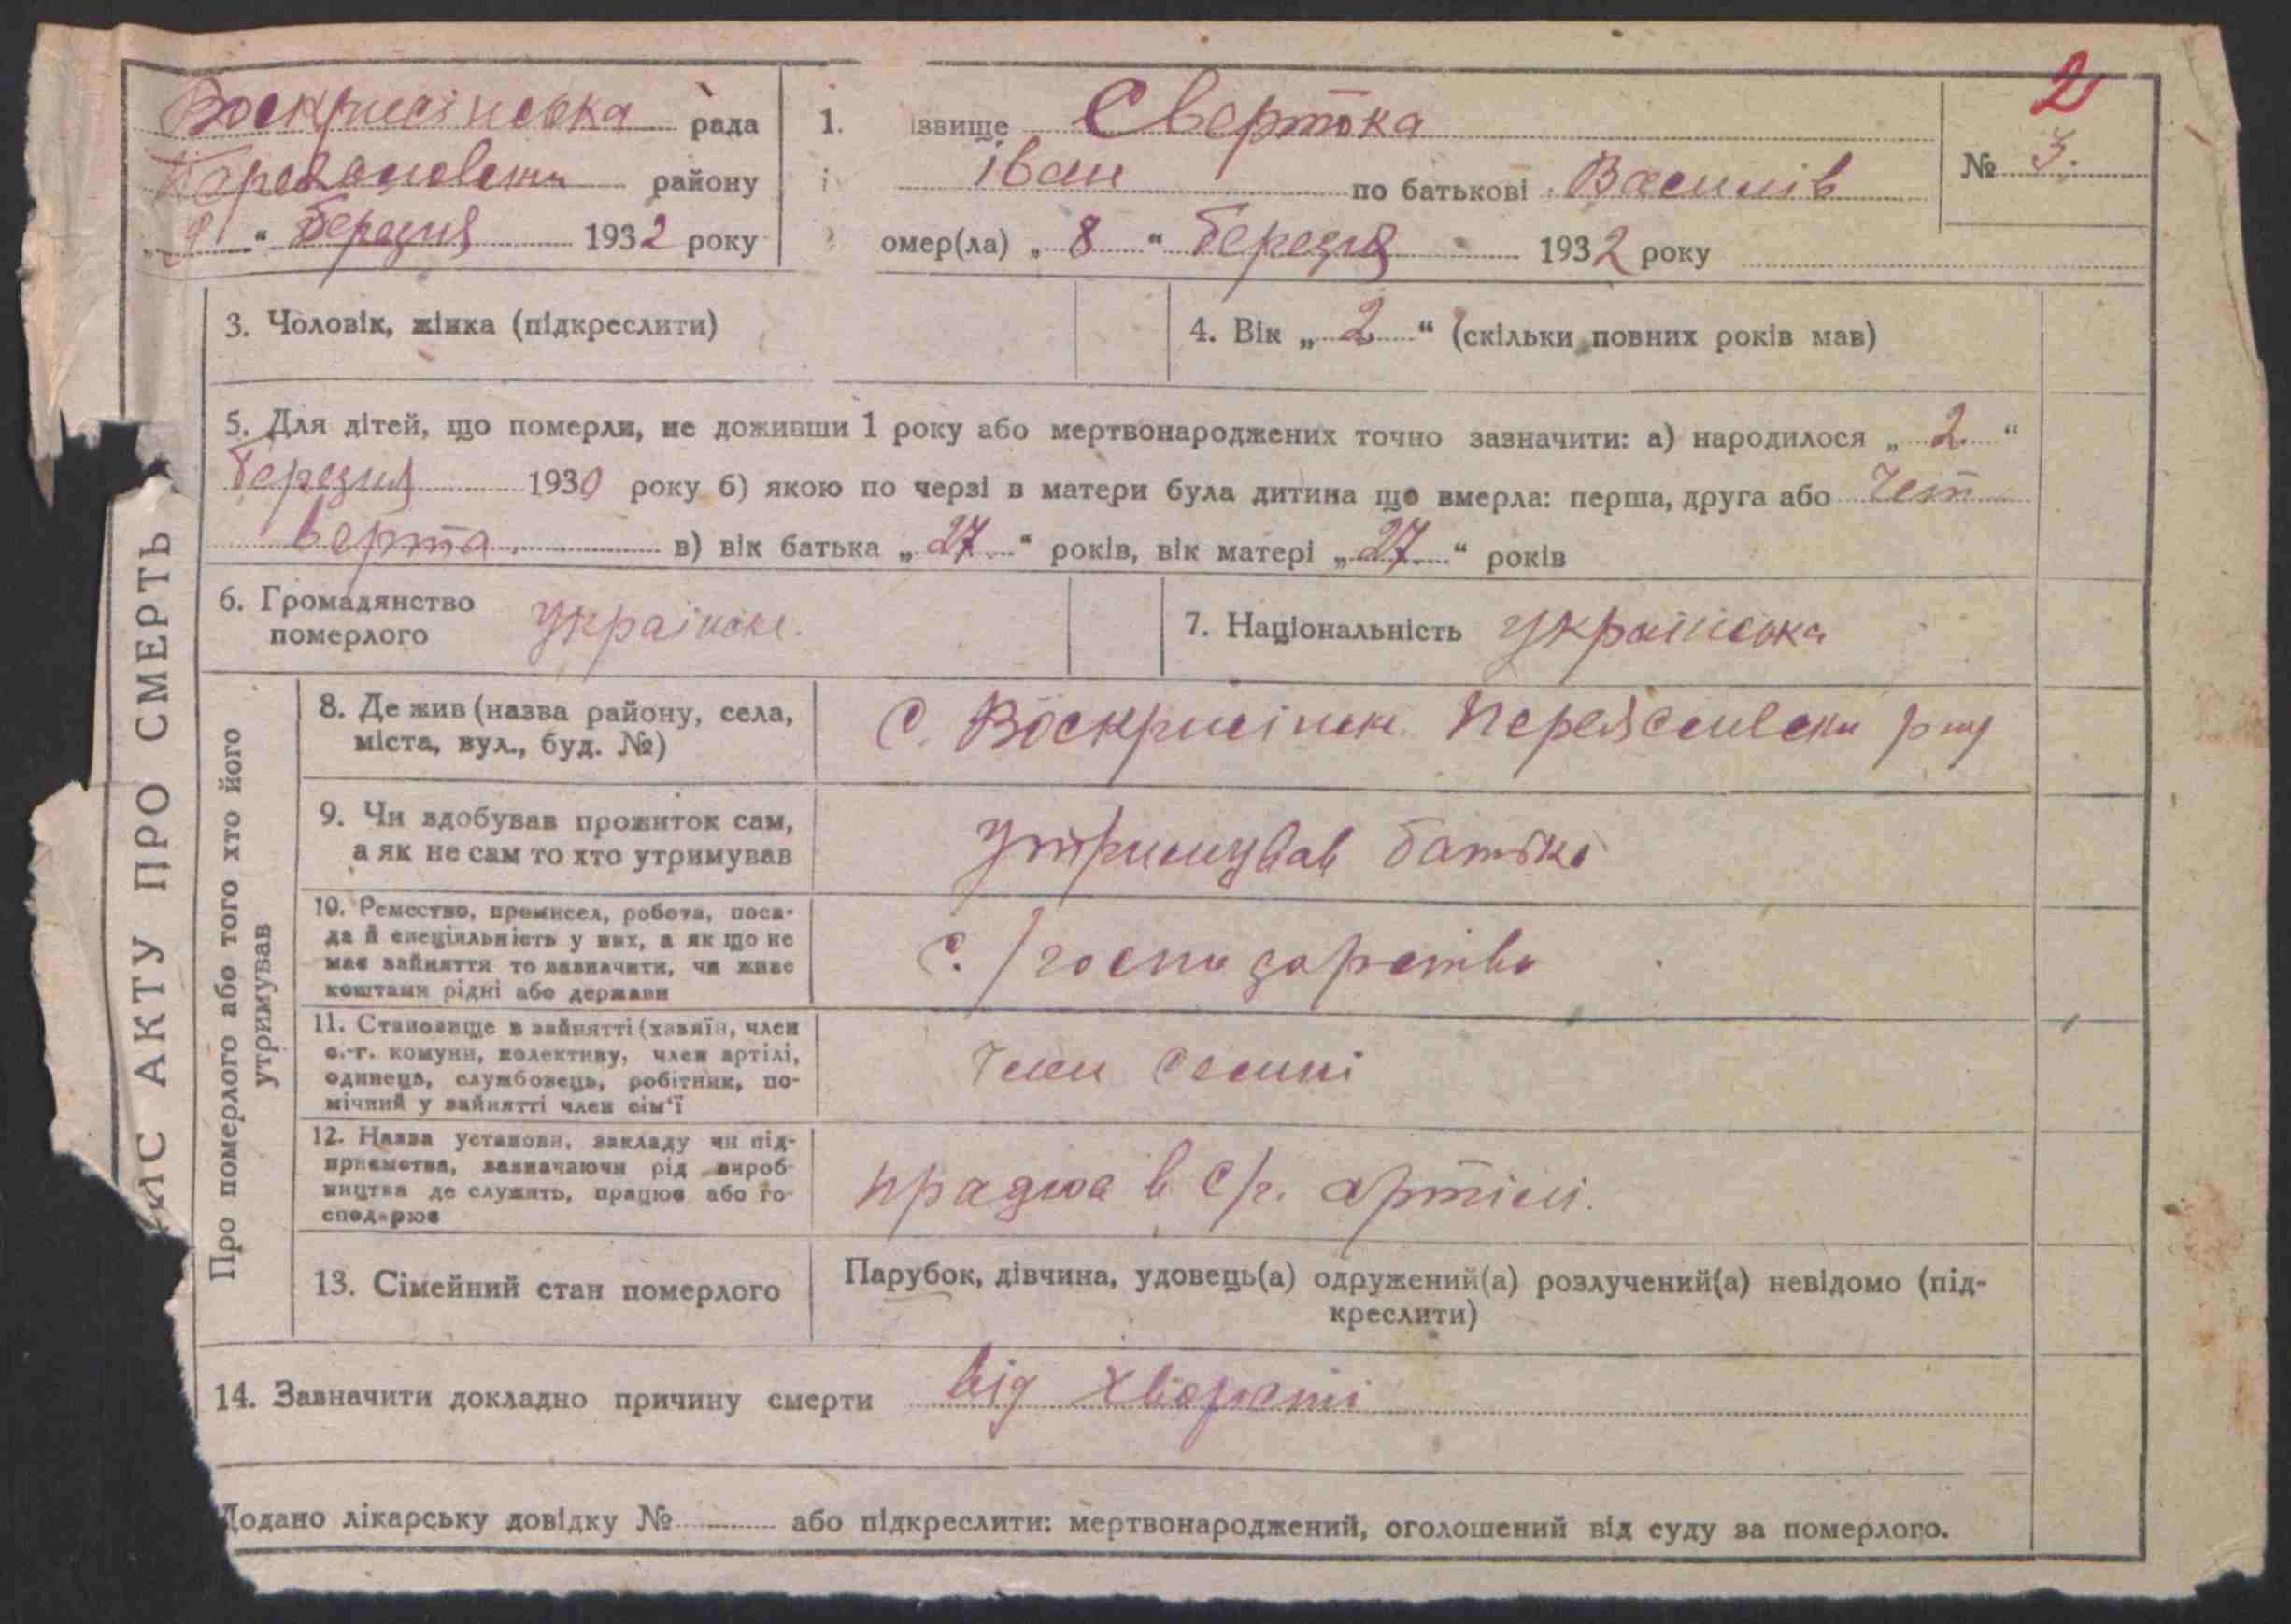 2
Воскрисінська рада
Переяславськ району
„ 9 “ березня 1932 року
1. ізвище Свертока
Іван по батькові Василів
омер(ла) „ 8 “ березня 1932 року
№ 3.
3. Чоловік, жінка (підкреслити)
4. Вік „ 2 “ (скільки повних років мав)
5. Для дітей, що померли, не доживши 1 року або мертвонароджених точно зазначити: а) народилося „ 2 “
березня 1930 року б) якою по черзі в матери була дитина що вмерла: перша, друга або чет
верта. в) вік батька „ 27 “ років, вік матері „ 27 “ років
6. Громадянство
померлого
українське.
7. Національність українська
АКТУ ПРО СМЕРТЬ
Про померлого або того хто його
утримував
8. Де жив (назва району, села,
міста, вул., буд. №)
с. Воскрисінськ. Переяславськ р-ну
9. Чи здобував прожиток сам,
а як не сам то хто утримував
утримував батько
10. Ремество, промисел, робота, поса-
да й спеціяльність у них, а як що не
має зайняття то зазначити, чи живе
коштами рідні або держави
с./господарство
11. Становище в зайнятті (хазяїн, член
с.-г. комуни, колективу, член артілі,
одинець, службовець, робітник, по-
мічний у зайнятті член сім'ї
член семні
12. Назва установи, закладу чи під-
приємства, зазначаючи рід вироб-
ництва де служить, працює або го-
сподарює
працюа в с/г. артілі.
13. Сімейний стан померлого
Парубок, дівчина, удовець(а) одружений(а) розлучений(а) невідомо (під-
креслити)
14. Зазначити докладно причину смерти від хворості
Додано лікарську довідку № або підкреслити: мертвонароджений, оголошений від суду за померлого.